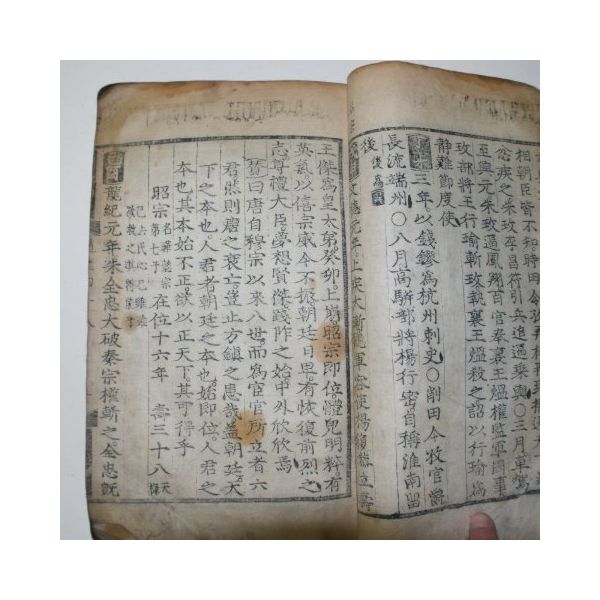 相朝臣皆不知時田令孜
忿疾之朱玫李昌符引兵追逼乘輿○三月車駕
至興元朱玫逼鳳翔百官奉襄王熅權監軍國事
玫部將王行瑜斬玫執襄王熅殺之詔以行瑜爲
靜難節度使
三年以錢鏐爲杭州刺史○削田令孜官爵
長流端州○八月高騈部將楊行密自稱淮南留
後
文德元年上疾大漸觀軍容使楊復恭立壽
王傑爲皇太弟癸卯上崩昭宗即位體皃明粹有
英氣以僖宗威令不振朝廷日卑有恢復前烈之
志尊禮大臣夢想賢傑踐阼之始中外欣欣焉
贊曰唐自穆宗以來八世而爲宦官所立者六
君然則唐之衰亡豈止方鎮之患哉盖朝廷天
下之本也人君者朝廷之本也始即位人君之
本也其本始不正欲以正天下其可得乎
昭宗 名華懿宗第七子 在位十六年 壽三十八
龍紀元年朱全忠大破秦宗權斬之全忠旣